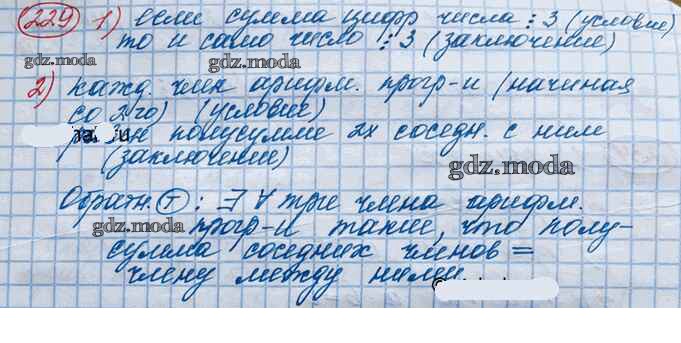 224 1) если сумма цифр числа ⋮ 3 (условие)
gdz.moda
то и само число ⋮ 3 (заключение)
gdz.moda
2) кажд. член арифм. прогр-и (начиная
со 2го) (условие)
полусумме 2х соседн. с ним
(заключение)
gdz.moda
Обратн. Т : ∃ ∀ три члена арифм.
gdz.moda
прогр-и такие, что полу-
gdz.moda
сумма соседних членов =
члену между ними